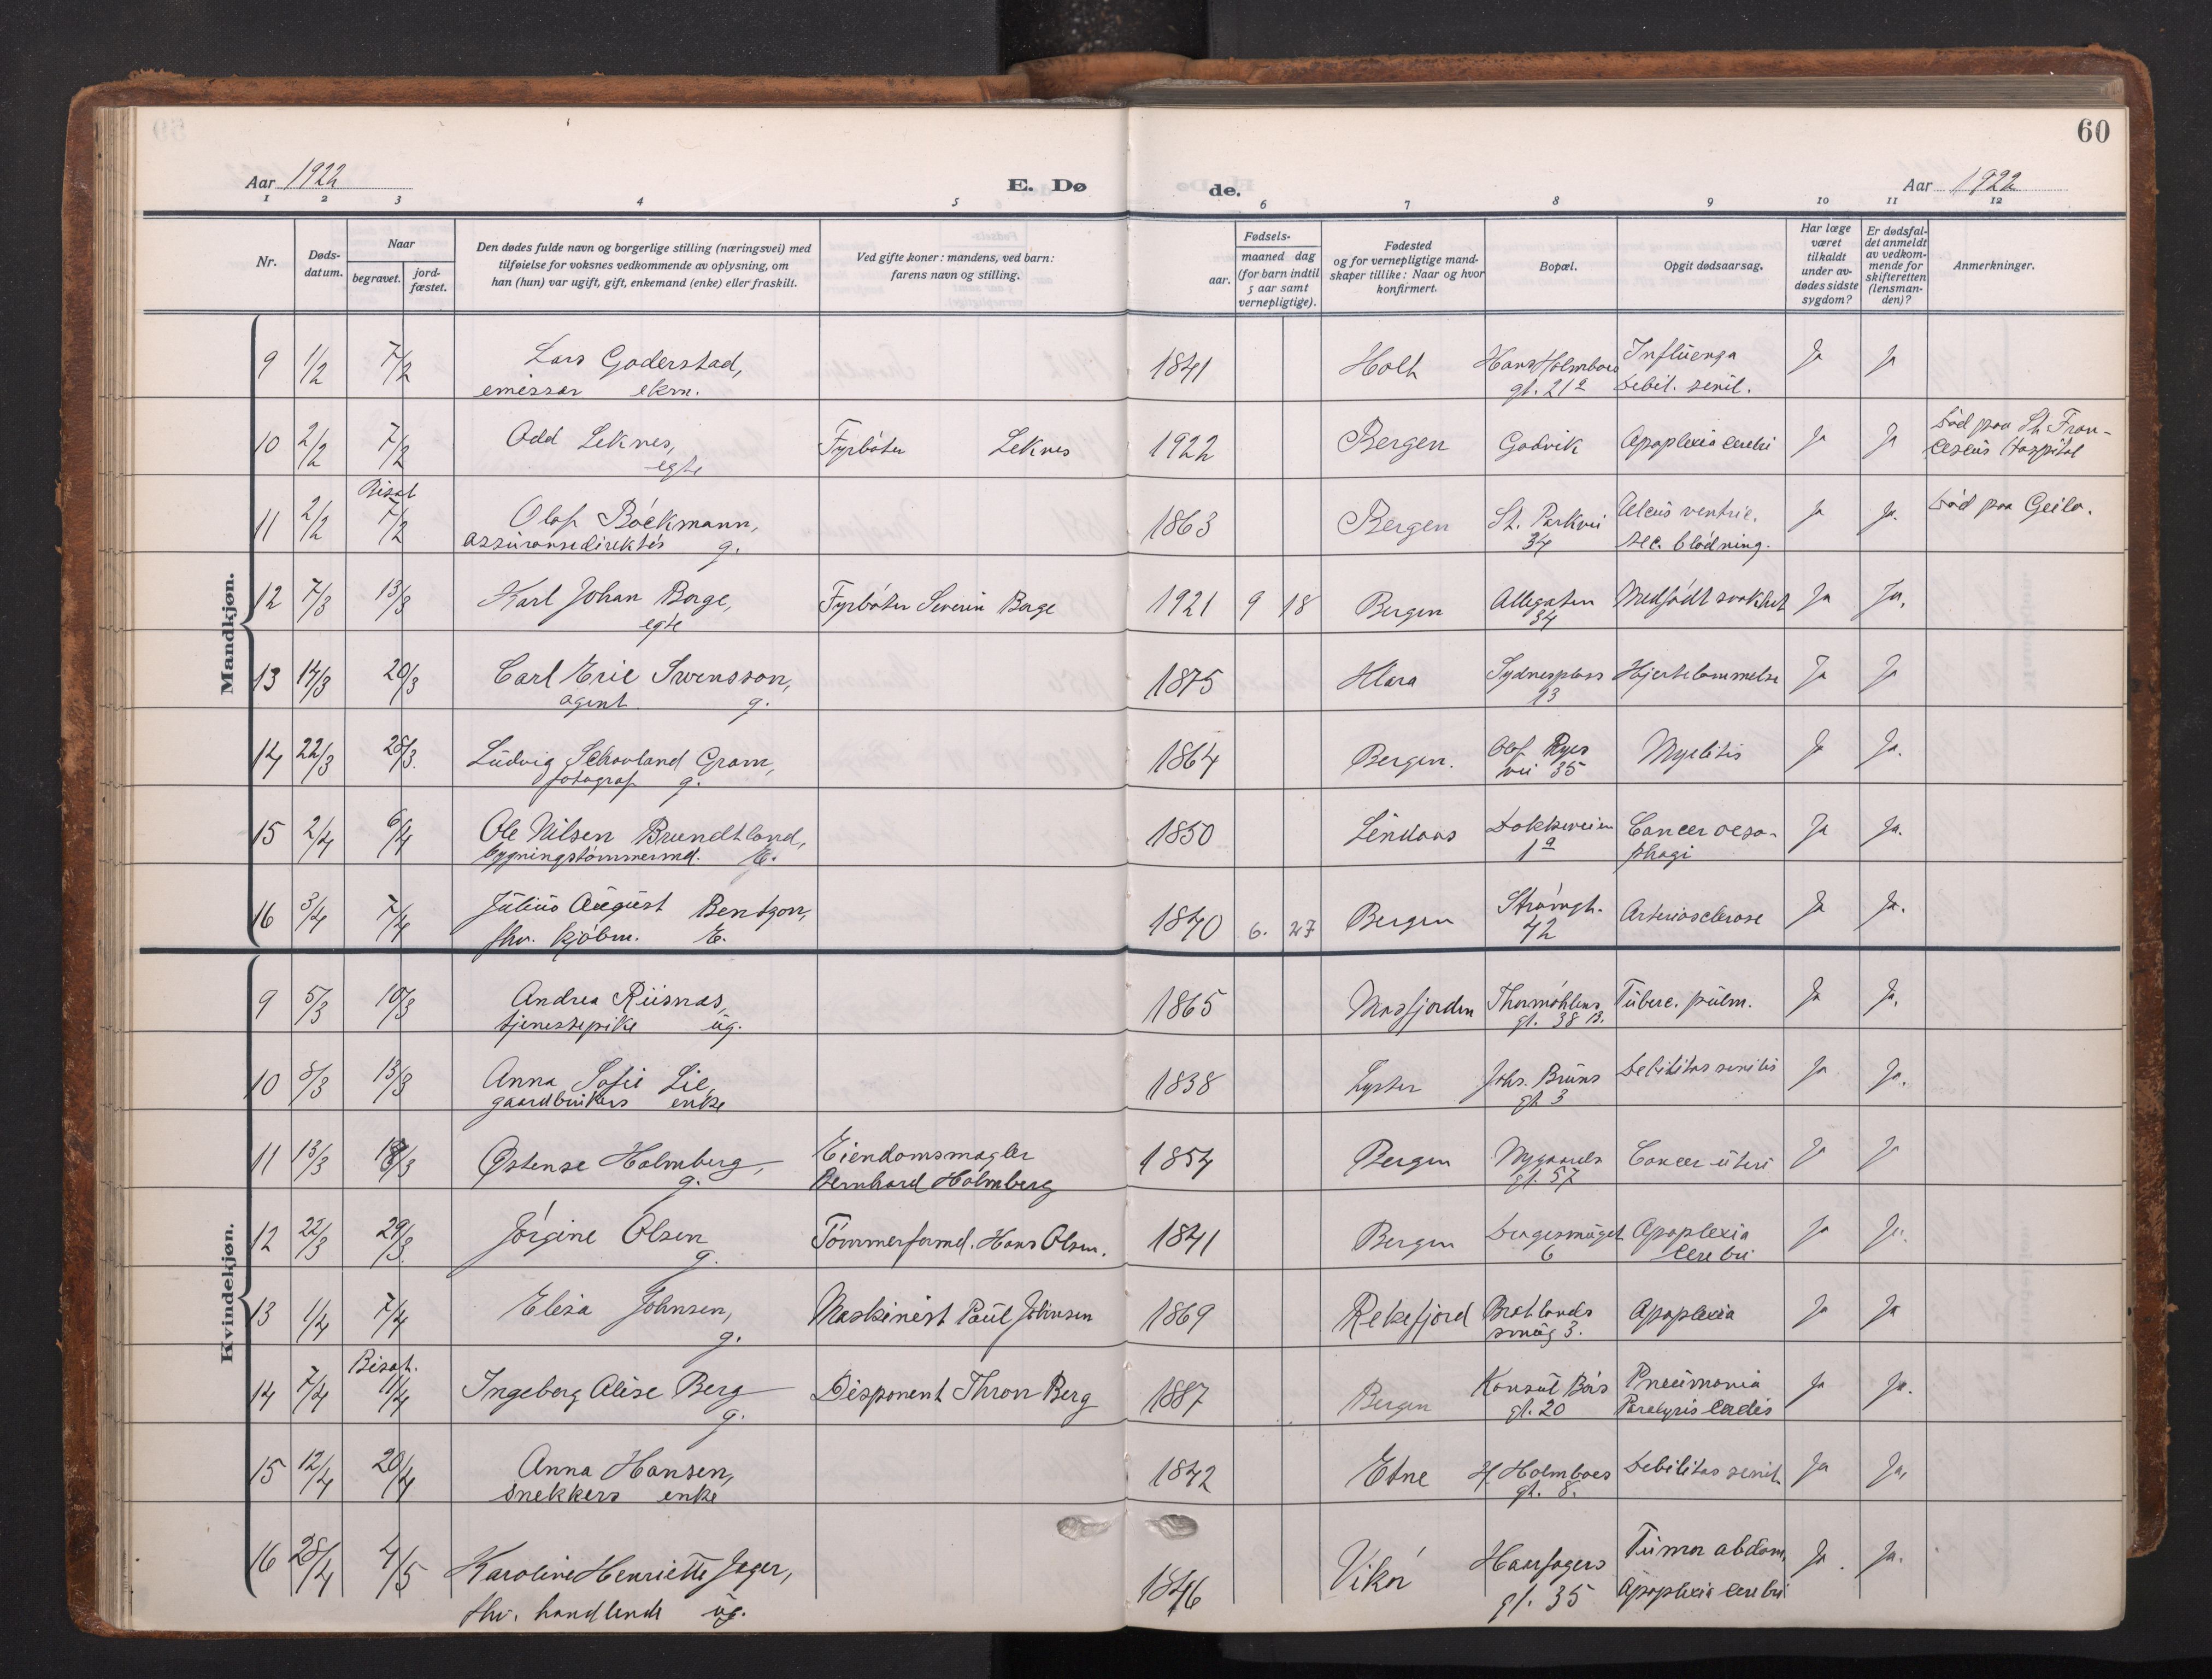 60
Aar 1922 E. Dø de. Aar 1922
1 2 3 4 5 6 7 8 9 10 11 12
Nr.
Døds-
datum.
Naar
begravet.
jord-
fæstet.
Den dødes fulde navn og borgerlige stilling (næringsvei) med
tilføielse for voksnes vedkommende av oplysning, om
han (hun) var ugift, gift, enkemand (enke) eller fraskilt.
Ved gifte koner: mandens, ved barn:
farens navn og stilling.
Fødsels-
aar.
maaned dag
(for barn indtil
5 aar samt
vernepligtige).
Fødested
og for vernepligtige mand-
skaper tillike: Naar og hvor
konfirmert.
Bopæl.
Opgit dødsaarsag.
Har læge
været
tilkaldt
under av-
dødes sidste
sygdom?
Er dødsfal-
det anmeldt
av vedkom-
mende for
skifteretten
(lensman-
den)?
Anmerkninger.
Mandkjøn.
9 1/2 7/2 Lars Goderstad, 1841 Holt Hans Holmboes Influenza Ja Ja
emissær ekm. gt. 21a Debil. senil.
10 2/2 7/2 Odd Leknes, Fyrbøter Leknes 1922 Bergen Godvik Apoplexia cerebri Ja Ja Død paa St. Fran-
egte ciscus Hospital
Bisat
11 2/2 7/2 Olaf Böckmann, 1863 Bergen St. Parkvei Ulcus ventric. Ja Ja. Død paa Geilo.
assuransedirektør g. 34 sec. blødning.
12 7/3 13/3 Karl Johan Borge, Fyrbøter Severin Borge 1921 9 18 Bergen Allegaten Medfødt svakhet Ja Ja.
egte 34
13 14/3 20/3 Carl Eric Svensson, 1875 Sydnesplass Hjertelammelse Ja Ja
agent g. 13
14 22/3 28/3. Ludvig Schovland Gram, 1864 Bergen. Olaf Ryes Myelitis Ja Ja.
fotograf g. vei 35
15 2/4 6/4 Ole Nilsen Brundtland, 1850 Lindaas Dokkeveien Cancer oeso- Ja Ja.
bygningstømmermd. E. 1a phagi
16 3/4 7/4 Julius August Bentzon, 1840 6. 27 Bergen Strømgt. Arteriosclerose Ja Ja.
fhv. kjøbm. E. 42
Kvindekjøn.
9 5/3 10/3 Andrea Riisnæs, 1865 Masfjorden Thormøhlens Tuberc. pulm. Ja Ja.
tjenestepike ug. gt. 38 B.
10 8/3 13/3 Anna Sofie Lie, 1838 Lyster Johs. Bruns Debilitas senilis Ja Ja.
gaardbrukers enke gt 3
11 13/3 Østense Holmberg, Eiendomsmægler 1854 Bergen Nygaards Cancer uteri Ja Ja
g. Bernhard Holmberg gt. 57
12 22/3 29/3. Jørgine Olsen Tømmerformd. Hans Olsen. 1841 Bergen Dragesmuget Apoplexia Ja Ja.
g. 6 cerebri
13 1/4 7/4 Elisa Johnsen, Maskinist Paul Johnsen 1869 Rekefjord Bratlands Apoplexia Ja Ja
g. smug 3.
Bisat.
14 7/4 11/4 Ingeborg Alise Berg Disponent Thron Berg 1887 Bergen Konsul Børs Pneumonia Ja Ja.
g. gt. 20 Paralysis cordis
15 12/4 20/4 Anna Hansen, 1842 Etne H. Holmboes Debilitas senil. Ja Ja,
snekkers enke gt. 8.
16 28/4 4/5 Karoline Henriette Jæger, 1846 Vikør Haarfagers Tumor abdom, Ja. Ja.
fhv. handlende ug. gt. 35 Apoplexia cerebri